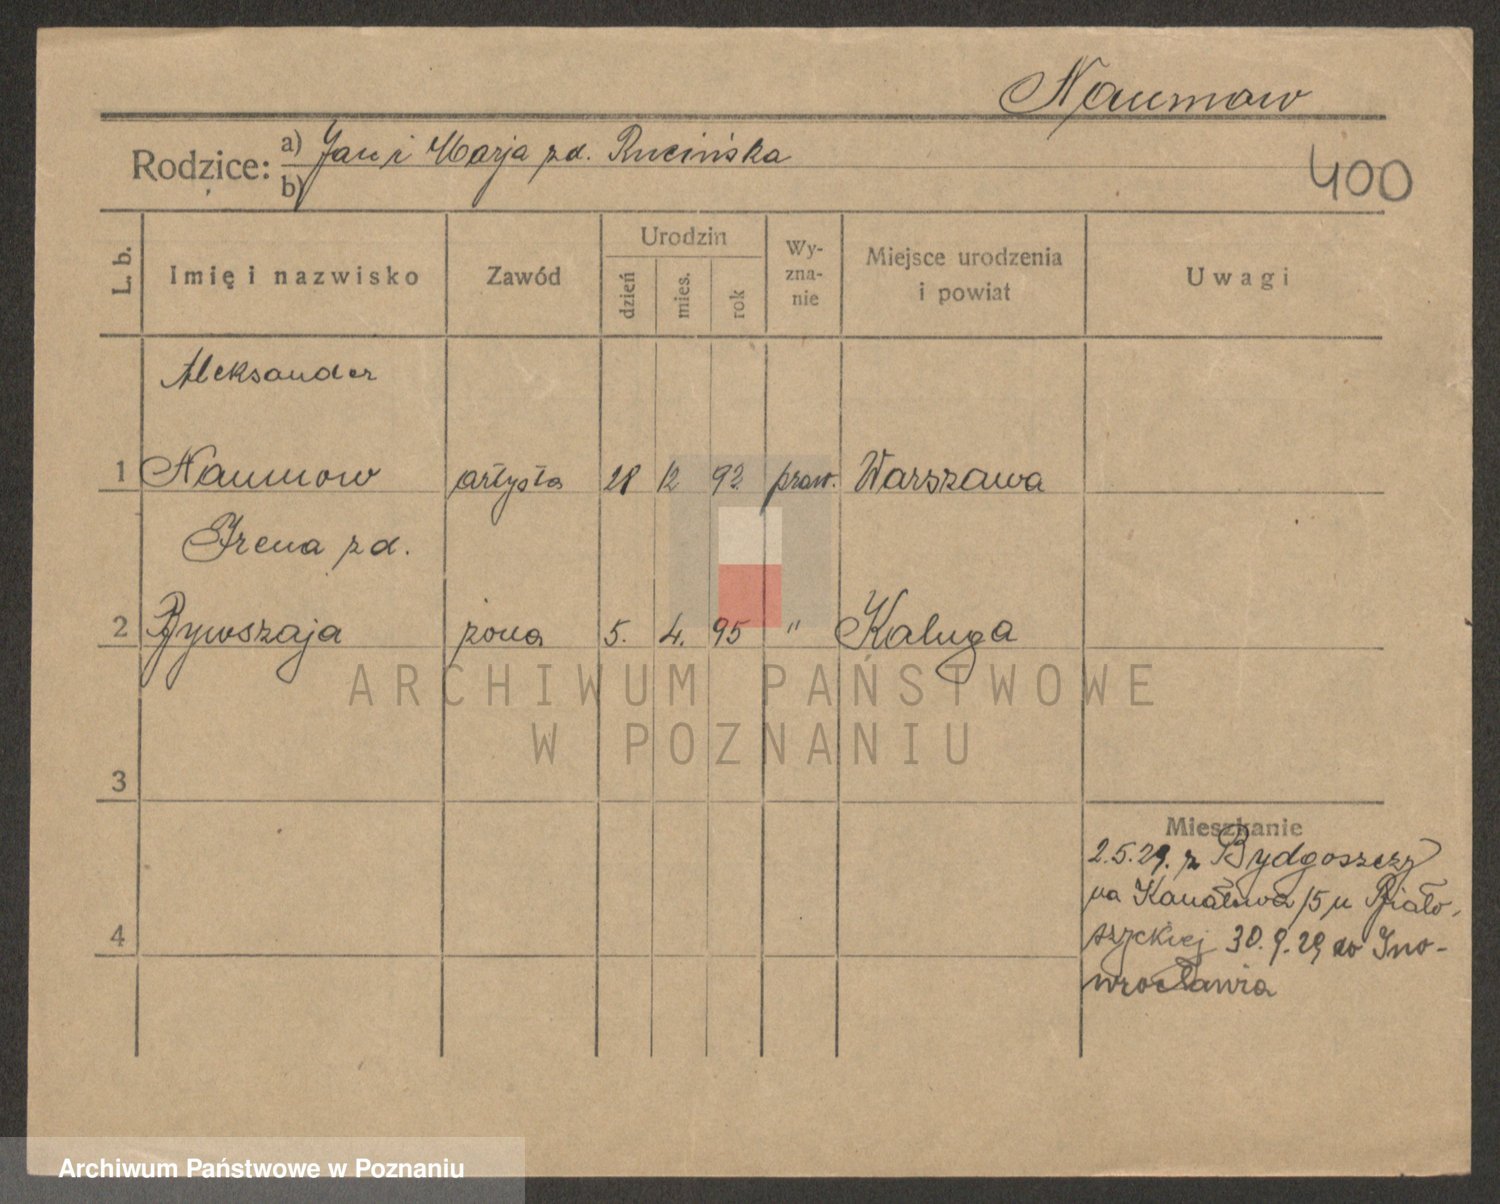 Naumow
Rodzice: a) Jan i Marja zd. Rucińska
b)
400
L. b. Imię i nazwisko Zawód Urodzin dzień mies. rok Wy-zna-nie Miejsce urodzenia i powiat Uwagi
Aleksander
1 Naumow artysta 28 12 92 praw. Warszawa
Irena zd.
2 Bywszaja żona 5. 4. 95 " Kaługa
ARCHIWUM PAŃSTWOWE
W POZNANIU
3
Mieszkanie
2.5.29. z Bydgoszczy
na Kanałowa 15 u Biało-
4
szyckiej 30.9.29 do Ino-
wrocławia
Archiwum Państwowe w Poznaniu